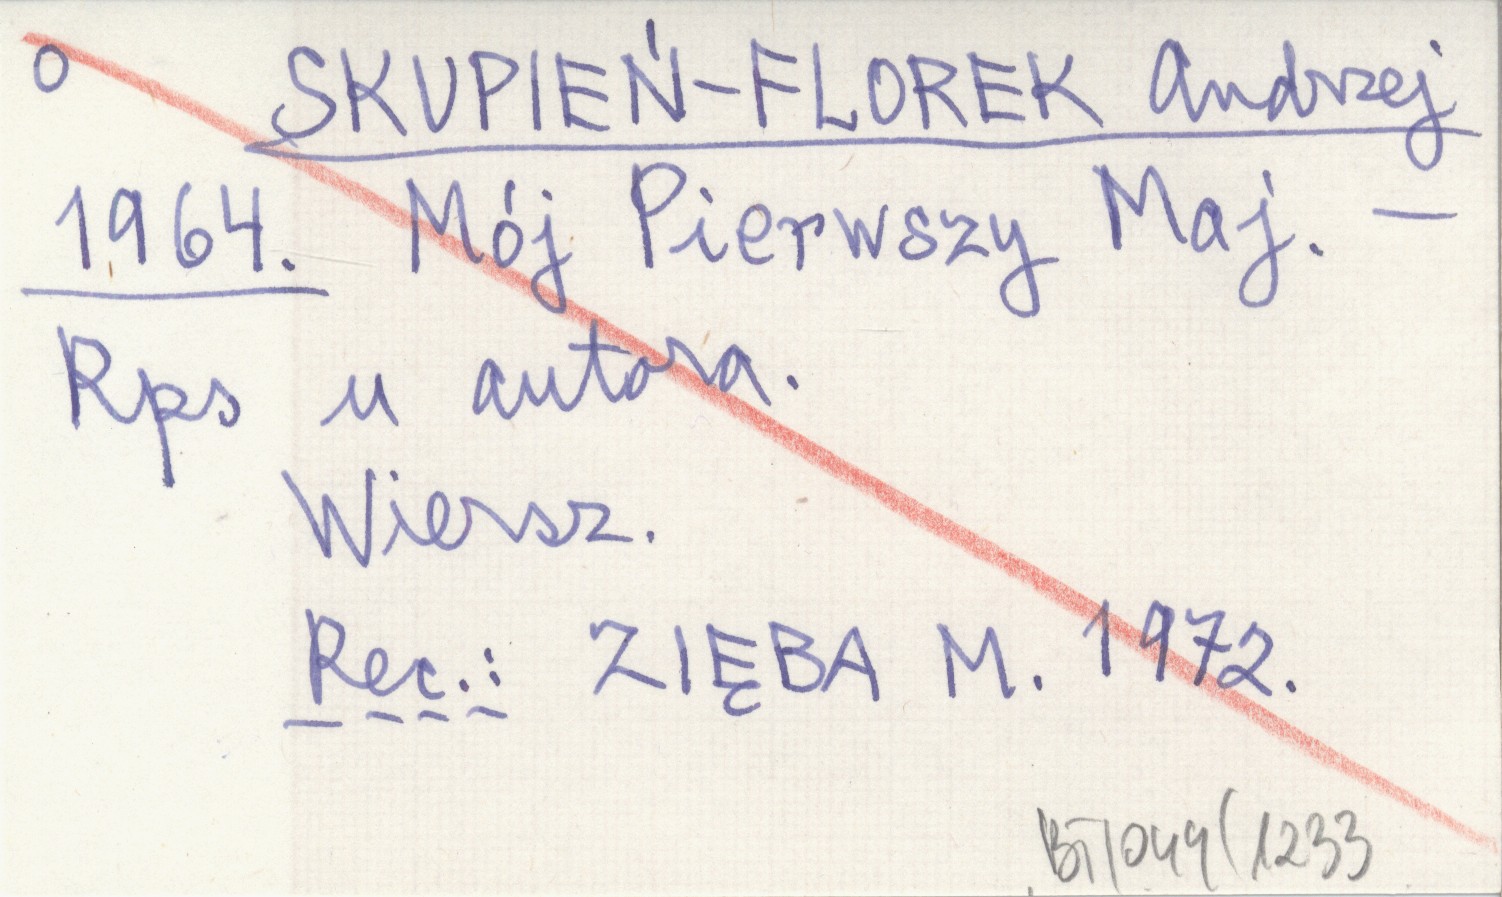 o SKUPIEŃ-FLOREK Andrzej
1964. Mój Pierwszy Maj. —
Rps u autora.
Wiersz.
Rec.: ZIĘBA M. 1972.
BT/049/1233